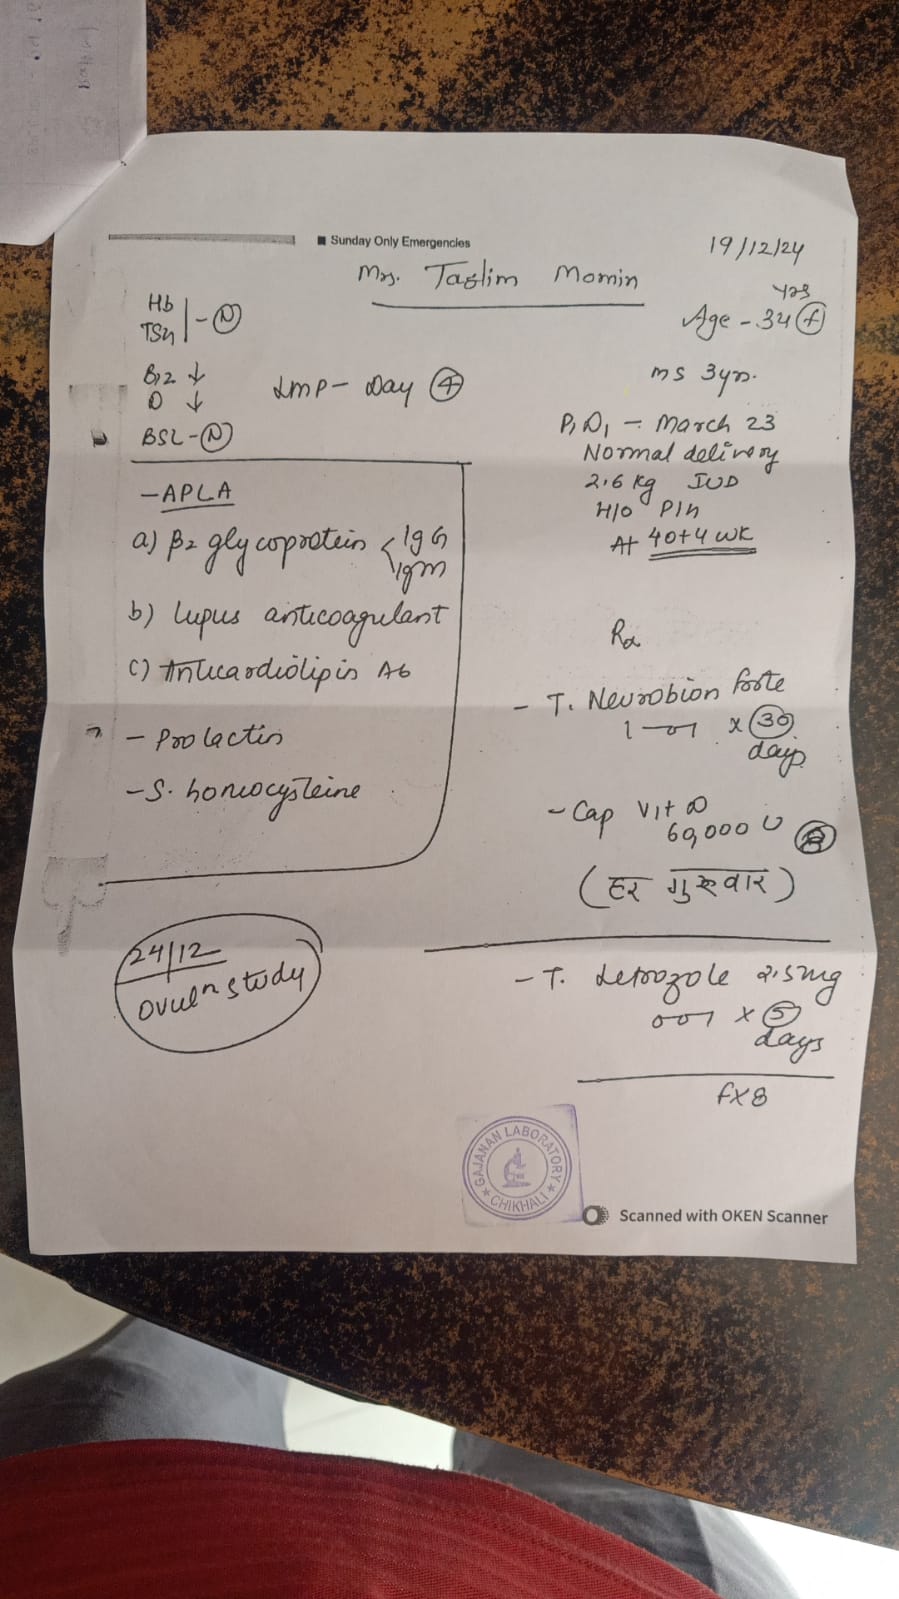 ■ Sunday Only Emergencies
19/12/24
Mrs. Taslim Momin
Age - 34 yrs
Hb
TSH - N
B12 ↓
D ↓
BSL - N
LMP - Day 4
ms 3yrs.
P1D1 - March 23
Normal delivery
2.6 kg IUD
H/o PIH
At 40+4 wk
- APLA
a) β2 glycoprotein < IgG
IgM
b) Lupus anticoagulant
c) Anticardiolipin Ab
- Prolactin
- S. homocysteine
Rx
- T. Neurobion forte
1-0-1 x 30
days
- Cap Vit D
60,000 U
(हर गुरूवार)
24/12
Ovuln study
- T. Letrozole 2.5mg
001 x 5
days
GAJANAN LABORATORY
★ CHIKHALI ★
Scanned with OKEN Scanner